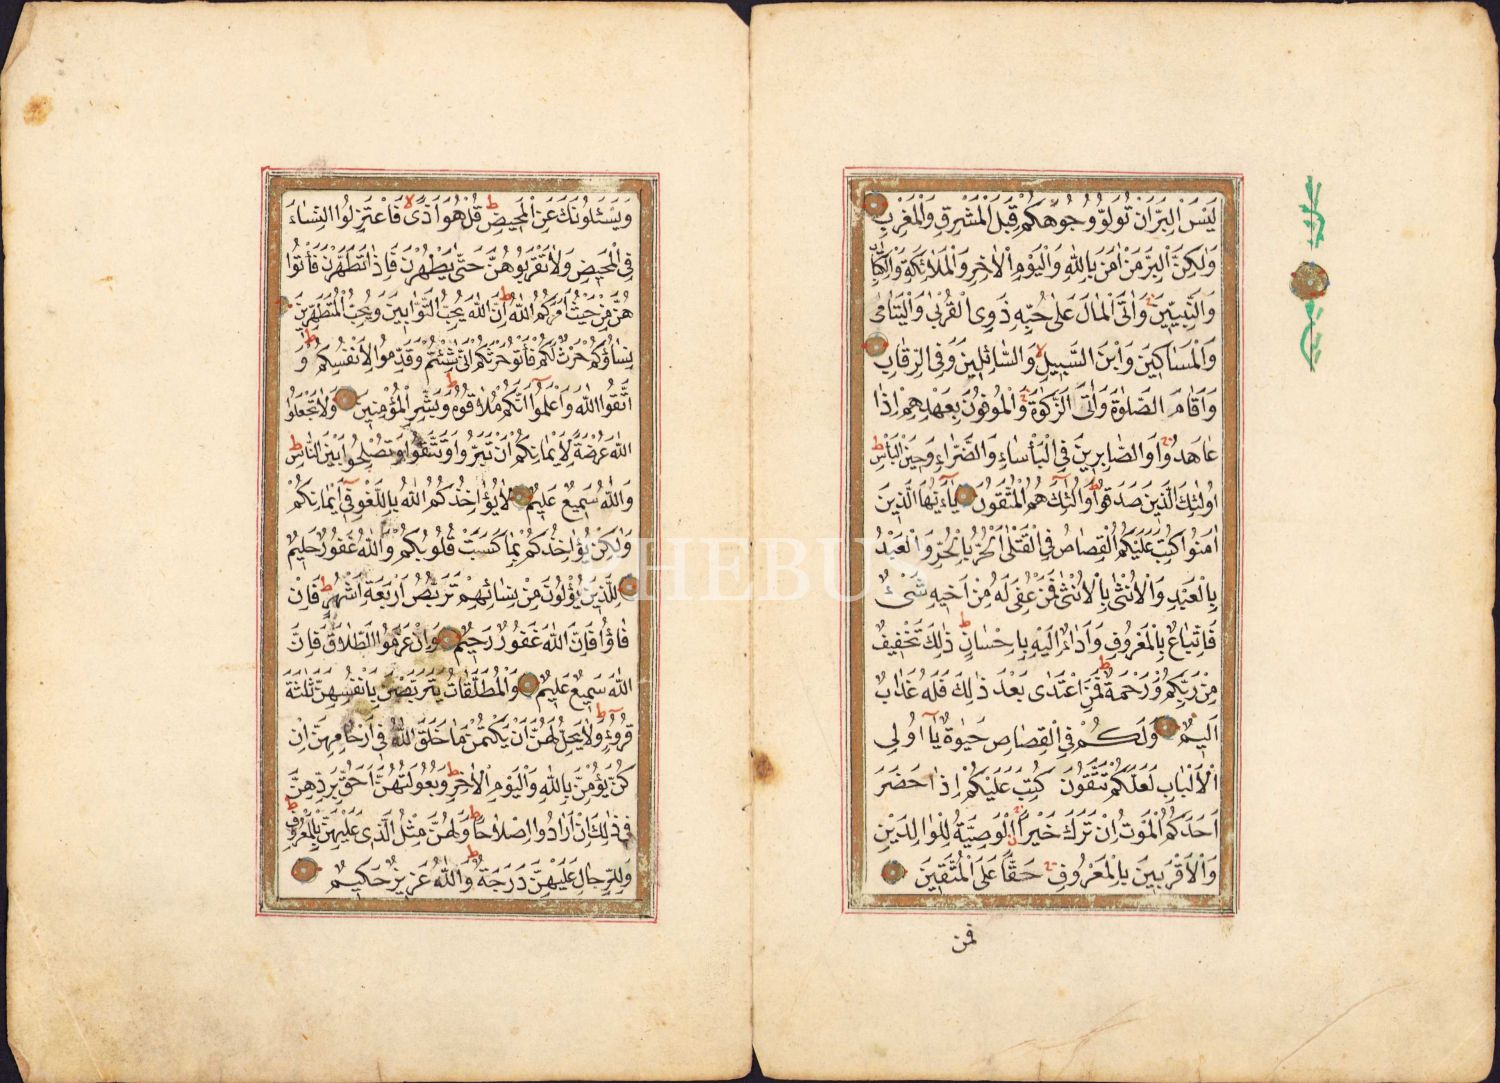 لَيْسَ الْبِرَّ اَنْ تُوَلُّوا وُجُوهَكُمْ قِبَلَ الْمَشْرِقِ وَالْمَغْرِبِ
وَلٰكِنَّ الْبِرَّ مَنْ اٰمَنَ بِاللّٰهِ وَالْيَوْمِ الْاٰخِرِ وَالْمَلَائِكَةِ وَالْكِتَابِ
وَالنَّبِيّٖنَ وَاٰتَى الْمَالَ عَلٰى حُبِّهٖ ذَوِى الْقُرْبٰى وَالْيَتَامٰى
وَالْمَسَاكِينَ وَابْنَ السَّبِيلِ وَالسَّائِلِينَ وَفِى الرِّقَابِ
وَاَقَامَ الصَّلٰوةَ وَاٰتَى الزَّكٰوةَ وَالْمُوفُونَ بِعَهْدِهِمْ اِذَا
عَاهَدُوا وَالصَّابِرِينَ فِى الْبَأْسَاءِ وَالضَّرَّاءِ وَحِينَ الْبَأْسِ
اُولٰئِكَ الَّذِينَ صَدَقُوا وَاُولٰئِكَ هُمُ الْمُتَّقُونَ يَا اَيُّهَا الَّذِينَ
اٰمَنُوا كُتِبَ عَلَيْكُمُ الْقِصَاصُ فِى الْقَتْلٰى اَلْحُرُّ بِالْحُرِّ وَالْعَبْدُ
بِالْعَبْدِ وَالْاُنْثٰى بِالْاُنْثٰى فَمَنْ عُفِىَ لَهُ مِنْ اَخِيهِ شَىْءٌ
فَاتِّبَاعٌ بِالْمَعْرُوفِ وَاَدَاءٌ اِلَيْهِ بِاِحْسَانٍ ذٰلِكَ تَخْفِيفٌ
مِنْ رَبِّكُمْ وَرَحْمَةٌ فَمَنِ اعْتَدٰى بَعْدَ ذٰلِكَ فَلَهُ عَذَابٌ
اَلِيمٌ وَلَكُمْ فِى الْقِصَاصِ حَيٰوةٌ يَا اُولِى
الْاَلْبَابِ لَعَلَّكُمْ تَتَّقُونَ كُتِبَ عَلَيْكُمْ اِذَا حَضَرَ
اَحَدَكُمُ الْمَوْتُ اِنْ تَرَكَ خَيْرًا الْوَصِيَّةُ لِلْوَالِدَيْنِ
وَالْاَقْرَبِينَ بِالْمَعْرُوفِ حَقًّا عَلَى الْمُتَّقِينَ
فمن
وَيَسْئَلُونَكَ عَنِ الْمَحِيضِ قُلْ هُوَ اَذًى فَاعْتَزِلُوا النِّسَاءَ
فِى الْمَحِيضِ وَلَا تَقْرَبُوهُنَّ حَتّٰى يَطْهُرْنَ فَاِذَا تَطَهَّرْنَ فَأْتُو
هُنَّ مِنْ حَيْثُ اَمَرَكُمُ اللّٰهُ اِنَّ اللّٰهَ يُحِبُّ التَّوَّابِينَ وَيُحِبُّ الْمُتَطَهِّرِينَ
نِسَاؤُكُمْ حَرْثٌ لَكُمْ فَأْتُوا حَرْثَكُمْ اَنّٰى شِئْتُمْ وَقَدِّمُوا لِاَنْفُسِكُمْ وَ
اتَّقُوا اللّٰهَ وَاعْلَمُوا اَنَّكُمْ مُلَاقُوهُ وَبَشِّرِ الْمُؤْمِنِينَ وَلَا تَجْعَلُوا
اللّٰهَ عُرْضَةً لِاَيْمَانِكُمْ اَنْ تَبَرُّوا وَتَتَّقُوا وَتُصْلِحُوا بَيْنَ النَّاسِ
وَاللّٰهُ سَمِيعٌ عَلِيمٌ لَا يُؤَاخِذُكُمُ اللّٰهُ بِاللَّغْوِ فِى اَيْمَانِكُمْ
وَلٰكِنْ يُؤَاخِذُكُمْ بِمَا كَسَبَتْ قُلُوبُكُمْ وَاللّٰهُ غَفُورٌ حَلِيمٌ
لِلَّذِينَ يُؤْلُونَ مِنْ نِسَائِهِمْ تَرَبُّصُ اَرْبَعَةِ اَشْهُرٍ فَاِنْ
فَاؤُ فَاِنَّ اللّٰهَ غَفُورٌ رَحِيمٌ وَاِنْ عَزَمُوا الطَّلَاقَ فَاِنَّ
اللّٰهَ سَمِيعٌ عَلِيمٌ وَالْمُطَلَّقَاتُ يَتَرَبَّصْنَ بِاَنْفُسِهِنَّ ثَلٰثَةَ
قُرُوءٍ وَلَا يَحِلُّ لَهُنَّ اَنْ يَكْتُمْنَ مَا خَلَقَ اللّٰهُ فِى اَرْحَامِهِنَّ اِنْ
كُنَّ يُؤْمِنَّ بِاللّٰهِ وَالْيَوْمِ الْاٰخِرِ وَبُعُولَتُهُنَّ اَحَقُّ بِرَدِّهِنَّ
فِى ذٰلِكَ اِنْ اَرَادُوا اِصْلَاحًا وَلَهُنَّ مِثْلُ الَّذِى عَلَيْهِنَّ بِالْمَعْرُوفِ
وَلِلرِّجَالِ عَلَيْهِنَّ دَرَجَةٌ وَاللّٰهُ عَزِيزٌ حَكِيمٌ
PHEBUS